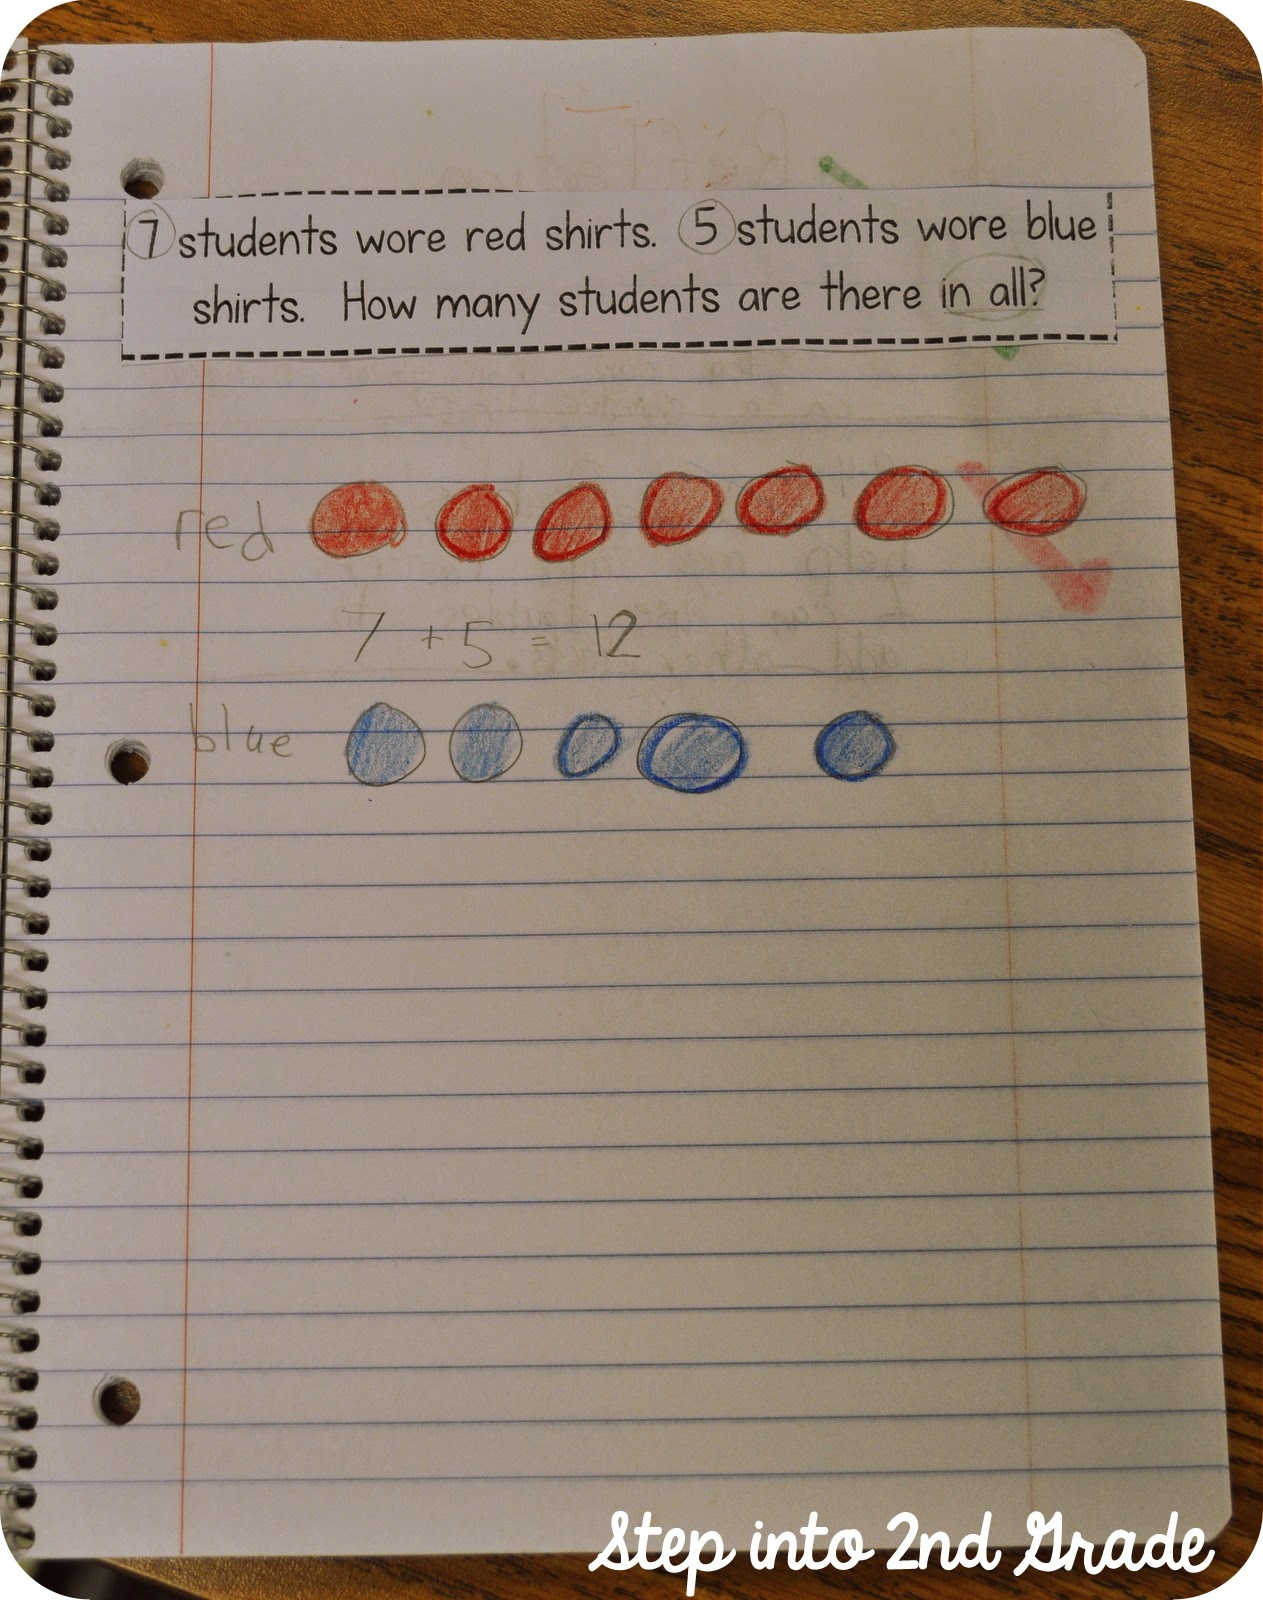 7 students wore red shirts. 5 students wore blue
shirts. How many students are there in all?
red
7 + 5 = 12
blue
Step into 2nd Grade